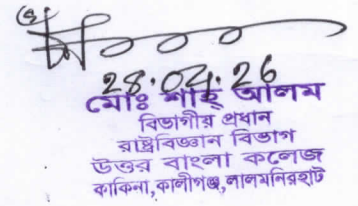 28.04.26
মোঃ শাহ্ আলম
বিভাগীয় প্রধান
রাষ্ট্রবিজ্ঞান বিভাগ
উত্তর বাংলা কলেজ
কাকিনা,কালীগঞ্জ,লালমনিরহাট